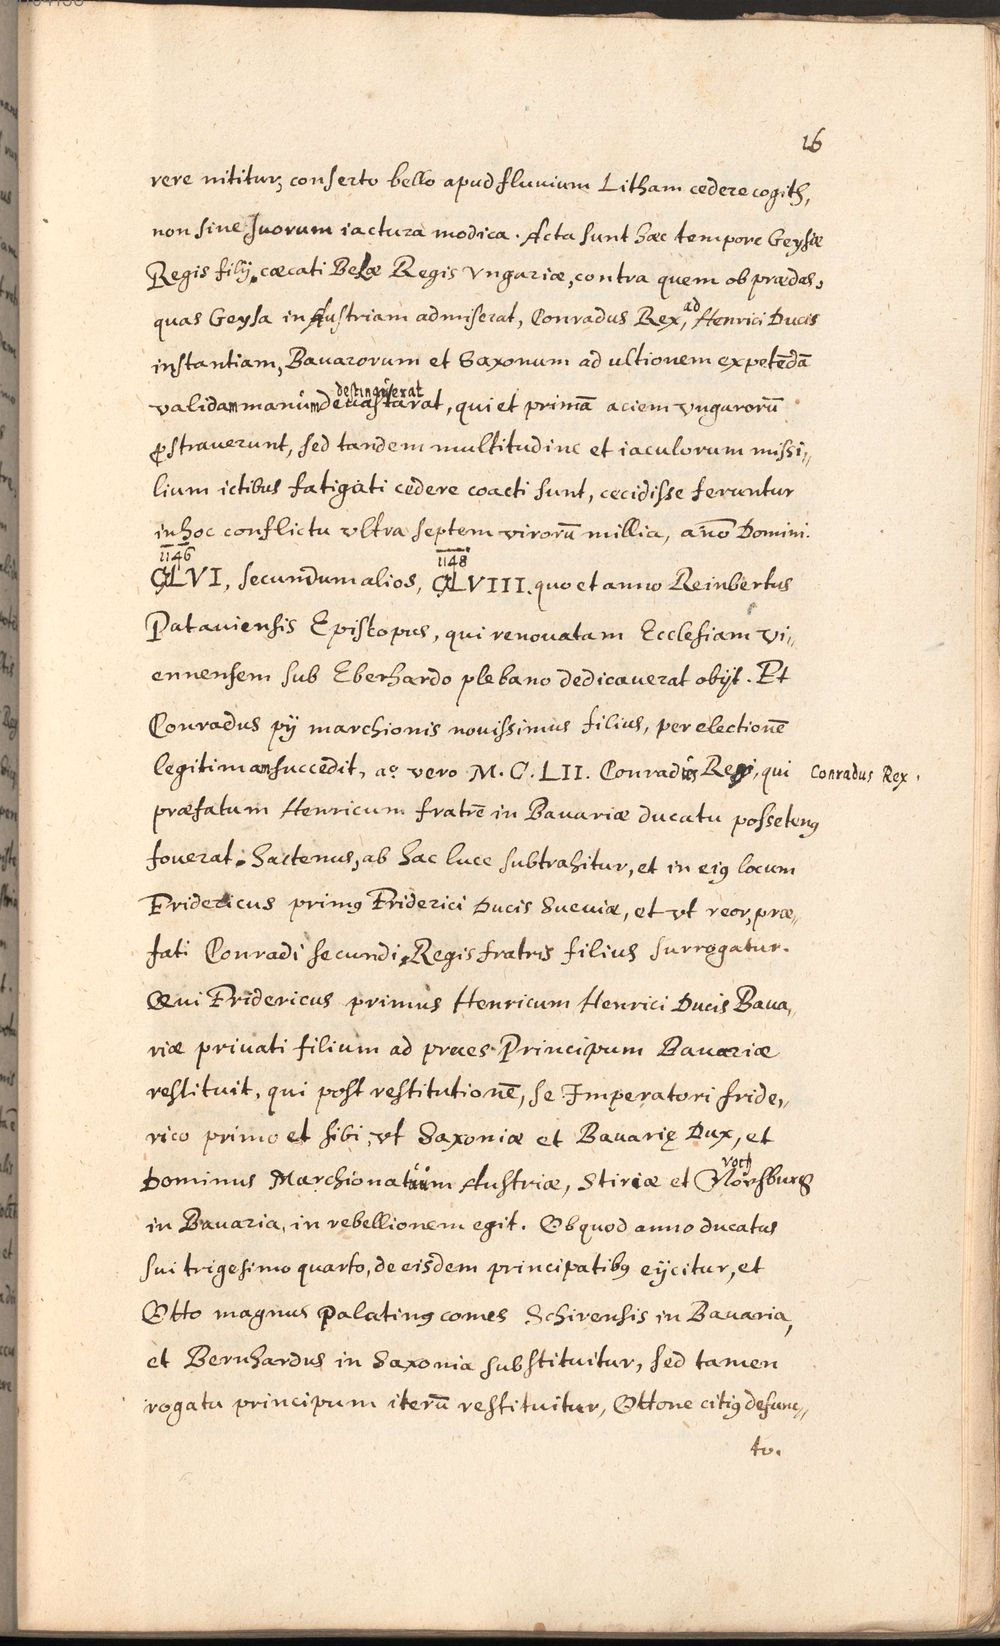 16
rere nititur, conserto bello apud fluuium Litham cedere cogitȝ,
non sine suorum iactura modica. Acta sunt hæc tempore Geysæ
Regis filij, cæcati Belæ Regis Vngariæ, contra quem ob prædas,
quas Geysa in Austriam admiserat, Conradus Rex, ad Henrici Ducis
instantiam, Bauarorum et Saxonum ad ultionem expetēdā
validam manum deuastarat, qui et primā aciem vngarorū
destinauerat
ꝓstrauerunt, sed tandem multitudine et iaculorum missi„
lium ictibus fatigati cedere coacti sunt, cecidisse feruntur
in hoc conflictu vltra septem virorū millia, año Domini.
1146 1148
CXLVI, secundum alios, CXLVIII. quo et anno Reinbertus
Patauiensis Episcopus, qui renouatam Ecclesiam vi„
ennensem sub Eberhardo plebano dedicauerat obijt. Et
Conradus pij marchionis nouissimus filius, per electionē
legitimam succedit, aº vero M.C.LII. Conradus Rex, qui
Conradus Rex.
præfatum Henricum fratrē in Bauariæ ducatu possetenꝰ
fouerat. hactenus, ab hac luce subtrahitur, et in eiꝰ locum
Fridericus primꝰ Friderici Ducis Sueuiæ, et vt reor, præ„
fati Conradi secundi, Regis fratris filius surrogatur.
Qui Fridericus primus Henricum Henrici Ducis Baua„
riæ priuati filium ad preces Principum Bauariæ
restituit, qui post restitutionē, se Imperatori fride„
rico primo et sibi, vt Saxoniæ et Bauarię Dux, et
Dominus Marchionatuum Austriæ, Stiriæ et
voch
in Bauaria, in rebellionem egit. Ob quod anno ducatus
sui trigesimo quarto, de eisdem principatibꝰ eijcitur, et
Otto magnus Palatinꝰ comes Schirensis in Bauaria,
et Bernhardus in Saxonia substituitur, sed tamen
rogatu principum iterū restituitur, Ottone citiꝰ defunc„
to.